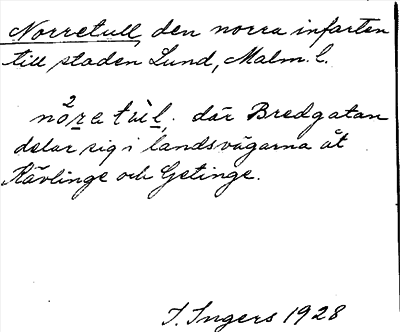 Norretull, den norra infarten
till staden Lund, Malm. l.
nò²retùl, där Bredgatan
delar sig i landsvägarna åt
Kävlinge och Getinge.
I. Ingers 1928